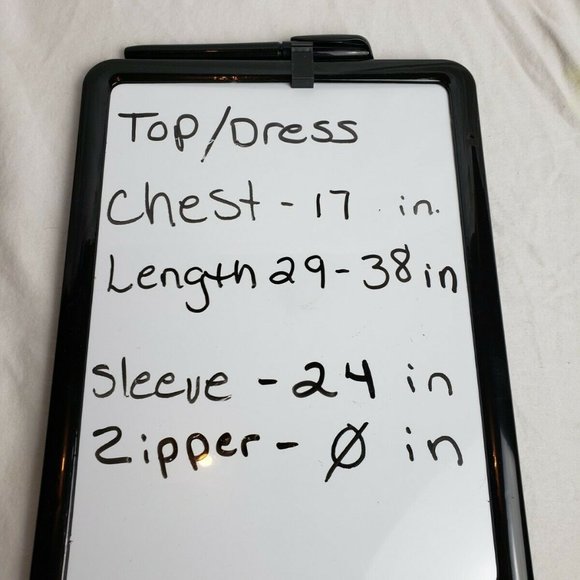 Top/Dress
Chest - 17 in.
Length 29-38 in
Sleeve - 24 in
Zipper - Ø in